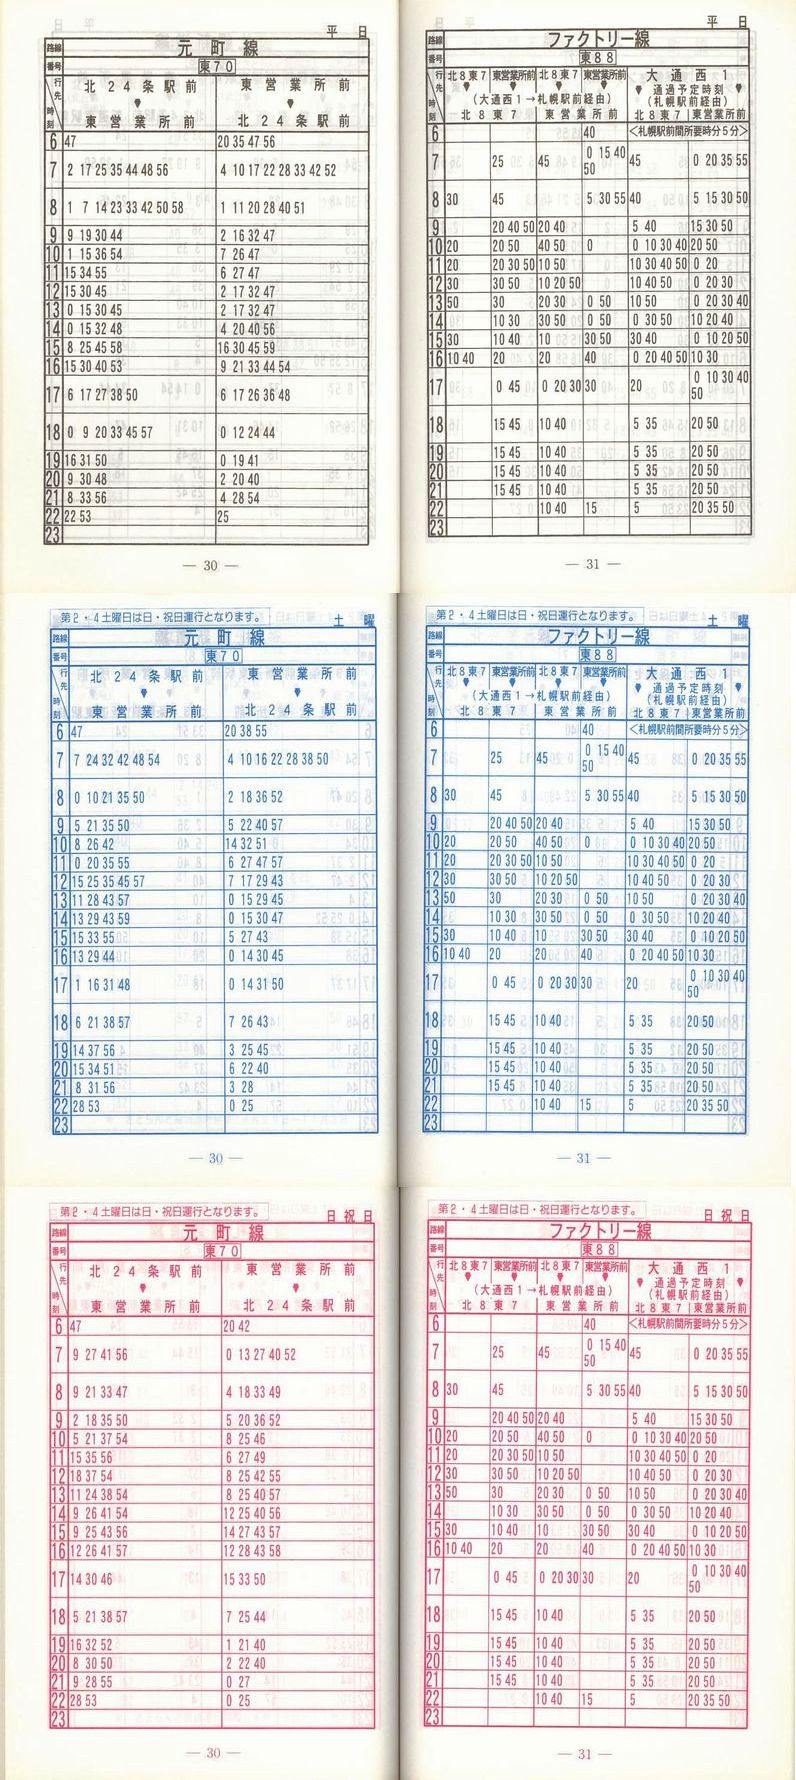 平 日
路線 元 町 線
番号 東70
行先 北24条駅前 東営業所前
時刻 東営業所前 北24条駅前
6 47 20 35 47 56
7 2 17 25 35 44 48 56 4 10 17 22 28 33 42 52
8 1 7 14 23 33 42 50 58 1 11 20 28 40 51
9 9 19 30 44 2 16 32 47
10 1 15 36 54 7 26 47
11 15 34 55 6 27 47
12 15 30 45 2 17 32 47
13 0 15 30 45 2 17 32 47
14 0 15 32 48 4 20 40 56
15 8 25 45 58 16 30 45 59
16 15 30 40 53 9 21 33 44 54
17 6 17 27 38 50 6 17 26 36 48
18 0 9 20 33 45 57 0 12 24 44
19 16 31 50 0 19 41
20 9 30 48 2 20 40
21 8 33 56 4 28 54
22 22 53 25
23
― 30 ―
平 日
路線 ファクトリー線
番号 東88
行先 北8東7 東営業所前 北8東7 東営業所前 大通西1
(大通西1→札幌駅前経由) 通過予定時刻
(札幌駅前経由)
時刻 北8東7 東営業所前 北8東7 東営業所前
6 40 <札幌駅前間所要時分5分>
7 25 45 0 15 40 50 45 0 20 35 55
8 30 45 5 30 55 40 5 15 30 50
9 20 40 50 20 40 5 40 15 30 50
10 20 20 50 40 50 0 0 10 30 40 20 50
11 20 20 30 50 10 50 10 30 40 50 0 20
12 30 30 50 10 20 50 10 40 50 0 20 30
13 50 30 20 30 0 50 10 50 0 20 30 40
14 10 30 30 50 0 50 0 30 50 10 20 40
15 30 10 40 10 30 50 30 40 0 10 20 50
16 10 40 20 20 40 0 20 40 50 10 30
17 0 45 0 20 30 30 20 0 10 30 40 50
18 15 45 10 40 5 35 20 50
19 15 45 10 40 5 35 20 50
20 15 45 10 40 5 35 20 50
21 15 45 10 40 5 35 20 50
22 10 40 15 5 20 35 50
23
― 31 ―
第2・4土曜日は日・祝日運行となります。 土 曜
路線 元 町 線
番号 東70
行先 北24条駅前 東営業所前
時刻 東営業所前 北24条駅前
6 47 20 38 55
7 7 24 32 42 48 54 4 10 16 22 28 38 50
8 0 10 21 35 50 2 18 36 52
9 5 21 35 50 5 22 40 57
10 8 26 42 14 32 51
11 0 20 35 55 6 27 47 57
12 15 25 35 45 57 7 17 29 43
13 11 28 43 57 0 15 29 45
14 13 29 43 59 0 15 30 47
15 15 33 55 5 27 43
16 13 29 44 0 14 30 45
17 1 16 31 48 0 14 31 50
18 6 21 38 57 7 26 43
19 14 37 56 3 25 45
20 15 34 51 6 22 40
21 8 31 56 3 28
22 28 53 0 25
23
― 30 ―
第2・4土曜日は日・祝日運行となります。 土 曜
路線 ファクトリー線
番号 東88
行先 北8東7 東営業所前 北8東7 東営業所前 大通西1
(大通西1→札幌駅前経由) 通過予定時刻
(札幌駅前経由)
時刻 北8東7 東営業所前 北8東7 東営業所前
6 40 <札幌駅前間所要時分5分>
7 25 45 0 15 40 50 45 0 20 35 55
8 30 45 5 30 55 40 5 15 30 50
9 20 40 50 20 40 5 40 15 30 50
10 20 20 50 40 50 0 0 10 30 40 20 50
11 20 20 30 50 10 50 10 30 40 50 0 20
12 30 30 50 10 20 50 10 40 50 0 20 30
13 50 30 20 30 0 50 10 50 0 20 30 40
14 10 30 30 50 0 50 0 30 50 10 20 40
15 30 10 40 10 30 50 30 40 0 10 20 50
16 10 40 20 20 40 0 20 40 50 10 30
17 0 45 0 20 30 30 20 0 10 30 40 50
18 15 45 10 40 5 35 20 50
19 15 45 10 40 5 35 20 50
20 15 45 10 40 5 35 20 50
21 15 45 10 40 5 35 20 50
22 10 40 15 5 20 35 50
23
― 31 ―
第2・4土曜日は日・祝日運行となります。 日 祝 日
路線 元 町 線
番号 東70
行先 北24条駅前 東営業所前
時刻 東営業所前 北24条駅前
6 47 20 42
7 9 27 41 56 0 13 27 40 52
8 9 21 33 47 4 18 33 49
9 2 18 35 50 5 20 36 52
10 5 21 37 54 8 25 46
11 15 35 56 6 27 49
12 18 37 54 8 25 42 55
13 11 24 38 54 8 25 40 57
14 9 26 41 54 12 25 40 56
15 9 25 43 56 14 27 43 57
16 12 26 41 57 12 28 43 58
17 14 30 46 15 33 50
18 5 21 38 57 7 25 44
19 16 32 52 1 21 40
20 8 30 50 2 22 40
21 9 28 55 0 27
22 28 53 0 25
23
― 30 ―
第2・4土曜日は日・祝日運行となります。 日 祝 日
路線 ファクトリー線
番号 東88
行先 北8東7 東営業所前 北8東7 東営業所前 大通西1
(大通西1→札幌駅前経由) 通過予定時刻
(札幌駅前経由)
時刻 北8東7 東営業所前 北8東7 東営業所前
6 40 <札幌駅前間所要時分5分>
7 25 45 0 15 40 50 45 0 20 35 55
8 30 45 5 30 55 40 5 15 30 50
9 20 40 50 20 40 5 40 15 30 50
10 20 20 50 40 50 0 0 10 30 40 20 50
11 20 20 30 50 10 50 10 30 40 50 0 20
12 30 30 50 10 20 50 10 40 50 0 20 30
13 50 30 20 30 0 50 10 50 0 20 30 40
14 10 30 30 50 0 50 0 30 50 10 20 40
15 30 10 40 10 30 50 30 40 0 10 20 50
16 10 40 20 20 40 0 20 40 50 10 30
17 0 45 0 20 30 30 20 0 10 30 40 50
18 15 45 10 40 5 35 20 50
19 15 45 10 40 5 35 20 50
20 15 45 10 40 5 35 20 50
21 15 45 10 40 5 35 20 50
22 10 40 15 5 20 35 50
23
― 31 ―